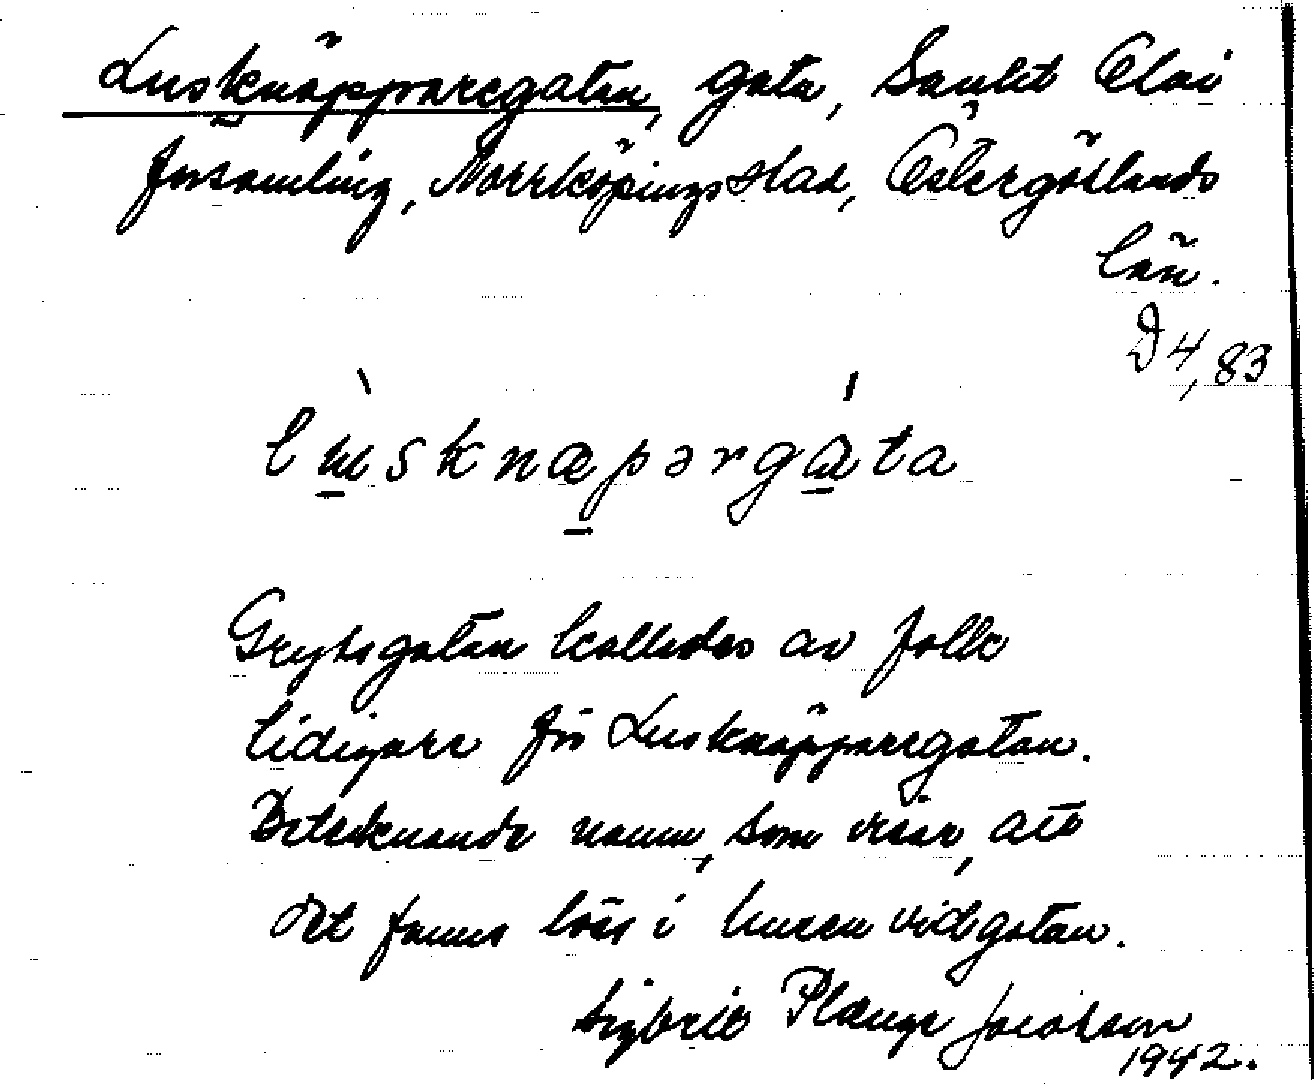 Lusknäpparegatan, gata, Sankt Olai
församling, Norrköpings stad, Östergötlands
län.
D 4, 83
lùsknæpərgáta
Grytsgatan kallades av folk
tidigare för Lusknäpparegatan.
Betecknande namn, som visar, att
det fanns löss i husen vid gatan.
Sigbrit Plænge Jacobson
1942.